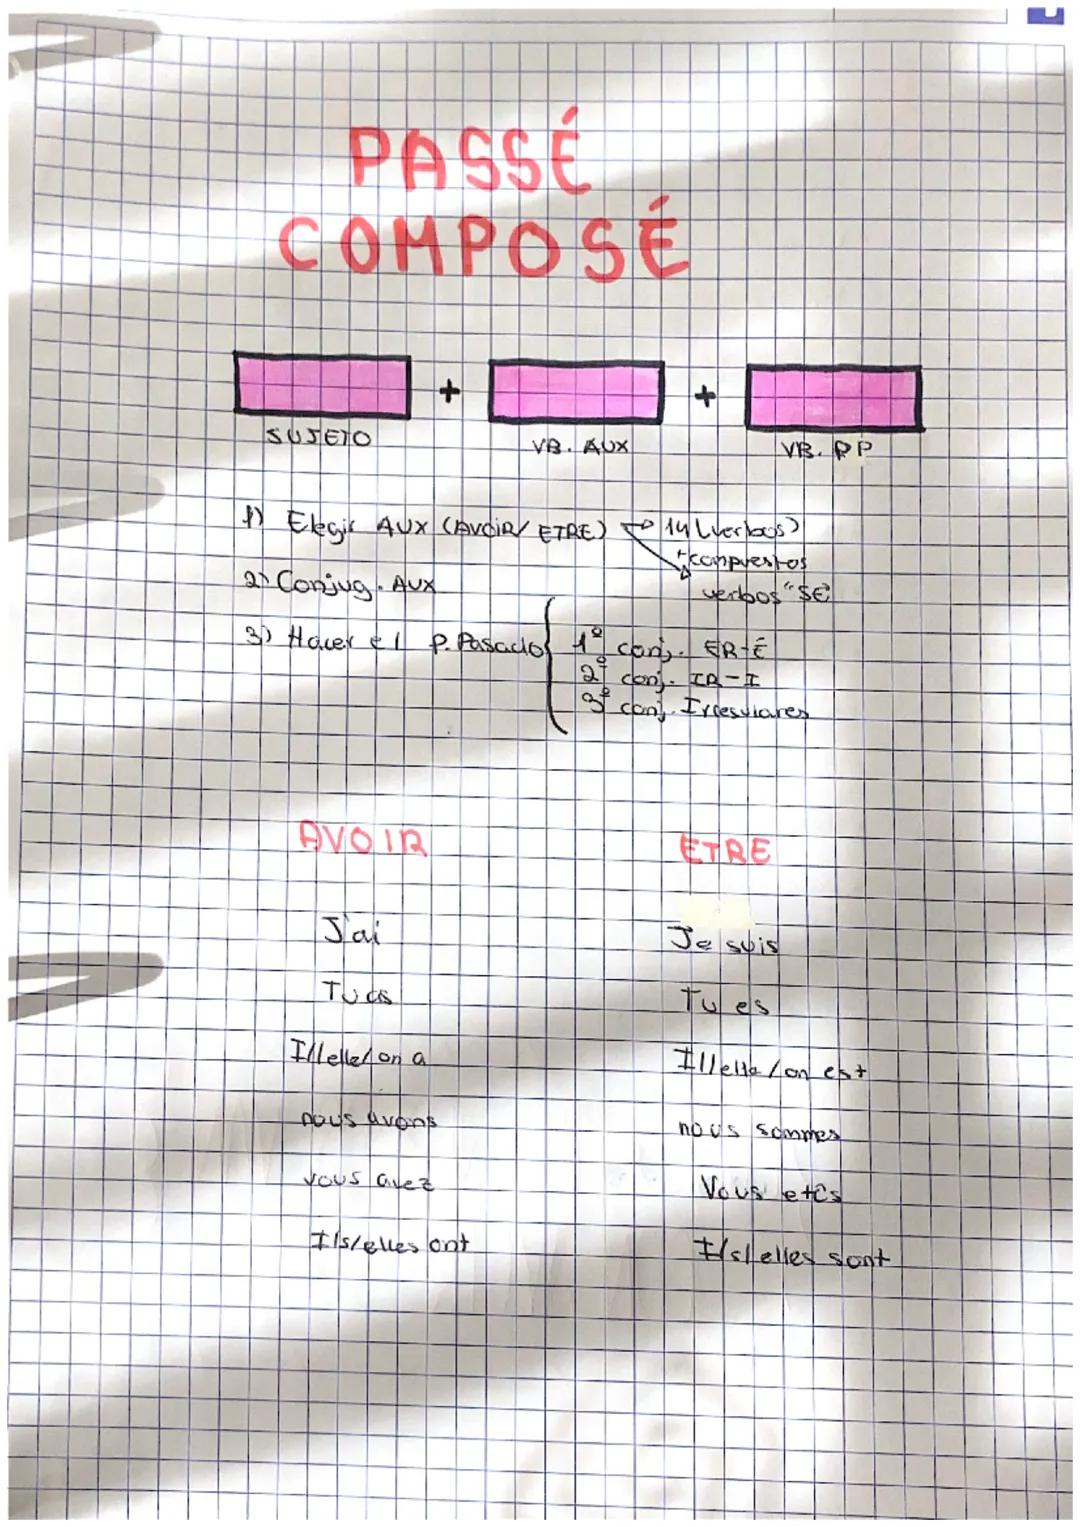 PASSÉ
COMPOSÉ
+ +
SUJETO VB. AUX VB. PP
1) Elegir AUX (AVOIR/ ETRE) 14 (verbos)
+compuestos
2) Conjug. AUX verbos "SE"
3) Hacer el p. Pasado 1º conj. ER-É
2º conj. IR-I
3º conj. Irregulares
AVOIR ETRE
J'ai Je suis
Tu as Tu es
Il/elle/on a Il/elle/on est
nous avons nous sommes
vous avez Vous etes
Ils/elles ont Ils/elles sont